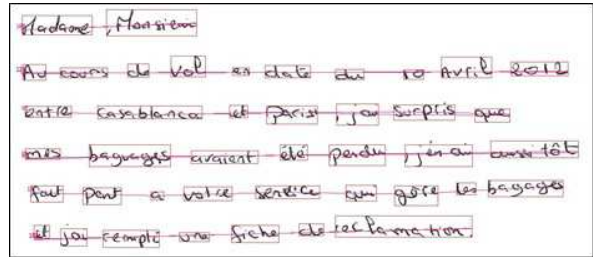 Madame, Monsieur
Au cours de vol en date du 10 Avril 2012
entre casablanca et Paris, j'ai surpris que
mes baguages avaient été perdu, j'en ai aussi tôt
fait part a votre service qui gère les bagages
et j'ai rempli une fiche de reclamation.